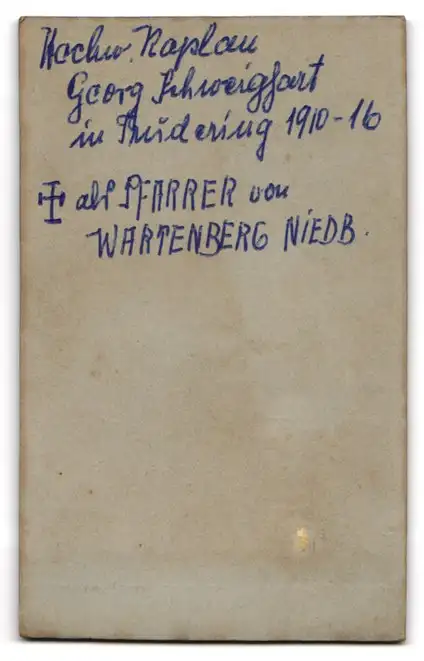 Hochw. Kaplan
Georg Schweighart
in Trudering 1910-16
✠ als PFARRER von
WARTENBERG NIEDB.